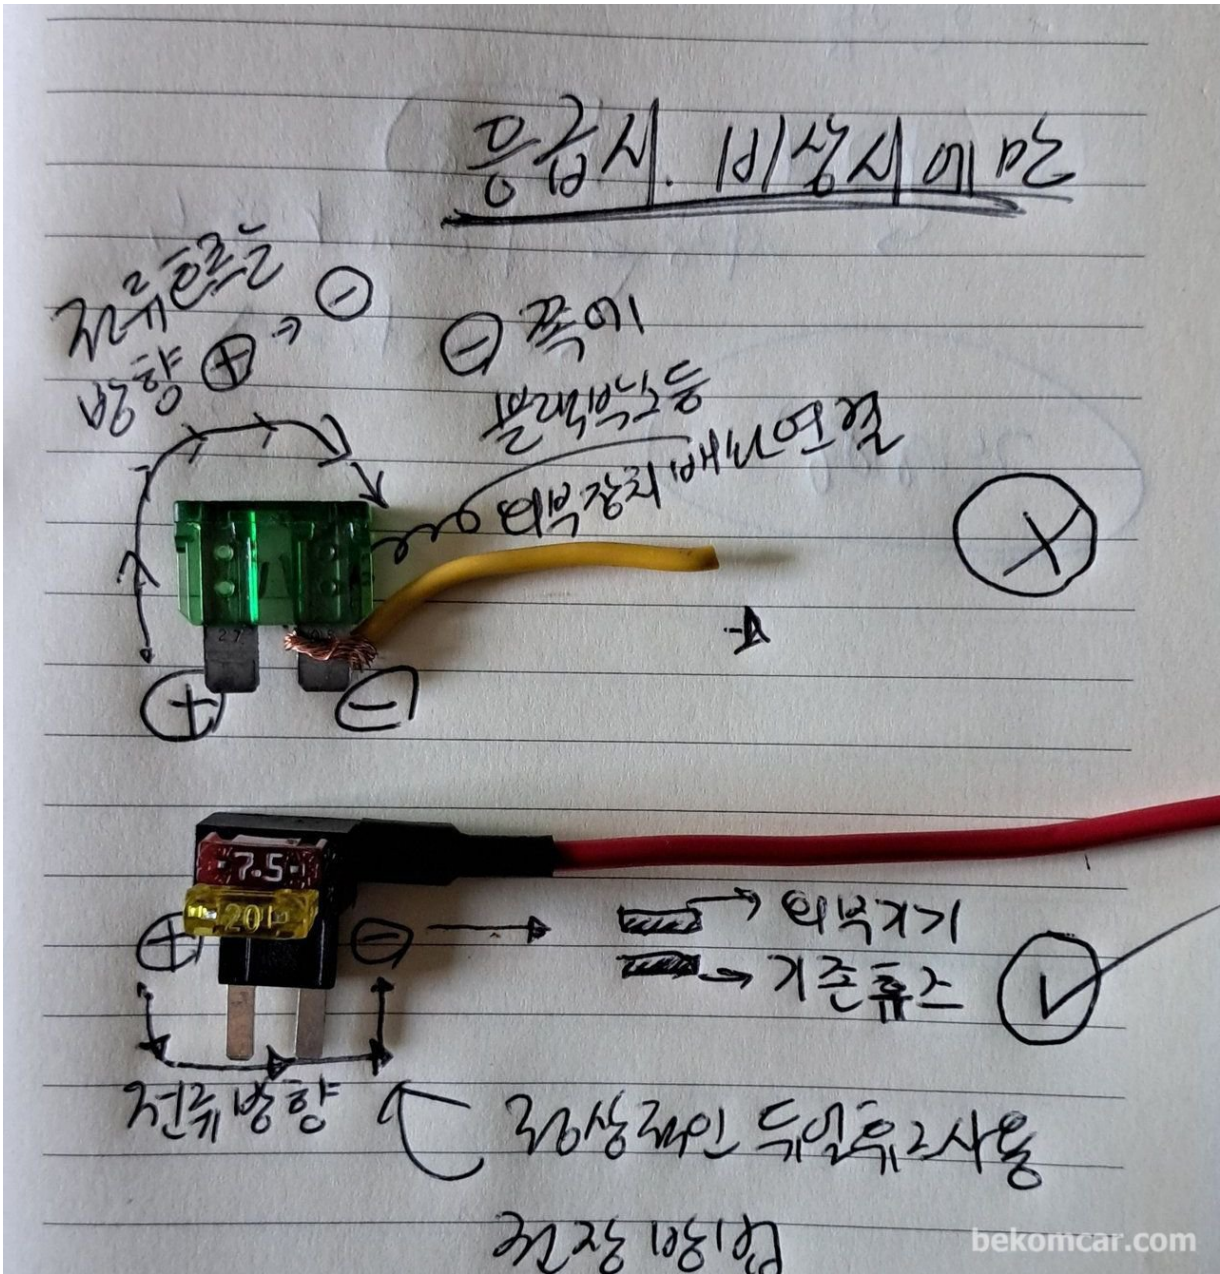 응급시. 비상시에만
전류흐르는
방향 ⊕ → ⊖
⊖ 쪽에
블랙박스등
외부장치 배선연결
X
27
⊕ ⊖
7.5
20
⊕ ⊖ → 외부기기
→ 기존휴즈
전류방향
정상적인 듀얼휴즈사용
권장방법
bekomcar.com